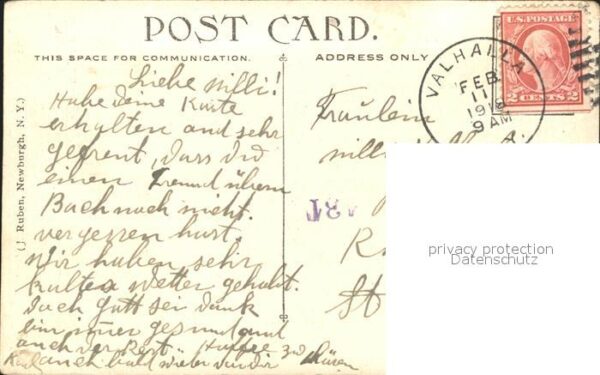 POST CARD.
THIS SPACE FOR COMMUNICATION.
ADDRESS ONLY
U.S. POSTAGE
2 CENTS 2
VALHALLA
FEB
11
9 AM
(J. Ruben, Newburgh, N. Y.)
Liebe Milli!
Habe deine Karte
erhalten und sehr
gefreut, dass Du
einen Freund übern
Bach noch nicht
vergessen hast.
Wir haben sehr
kaltes Wetter gehabt.
Doch Gott sei dank
bin imer gesund und
auch der Rest.
auch bald wieder von dir
Fräulein
Milli
St
privacy protection
Datenschutz